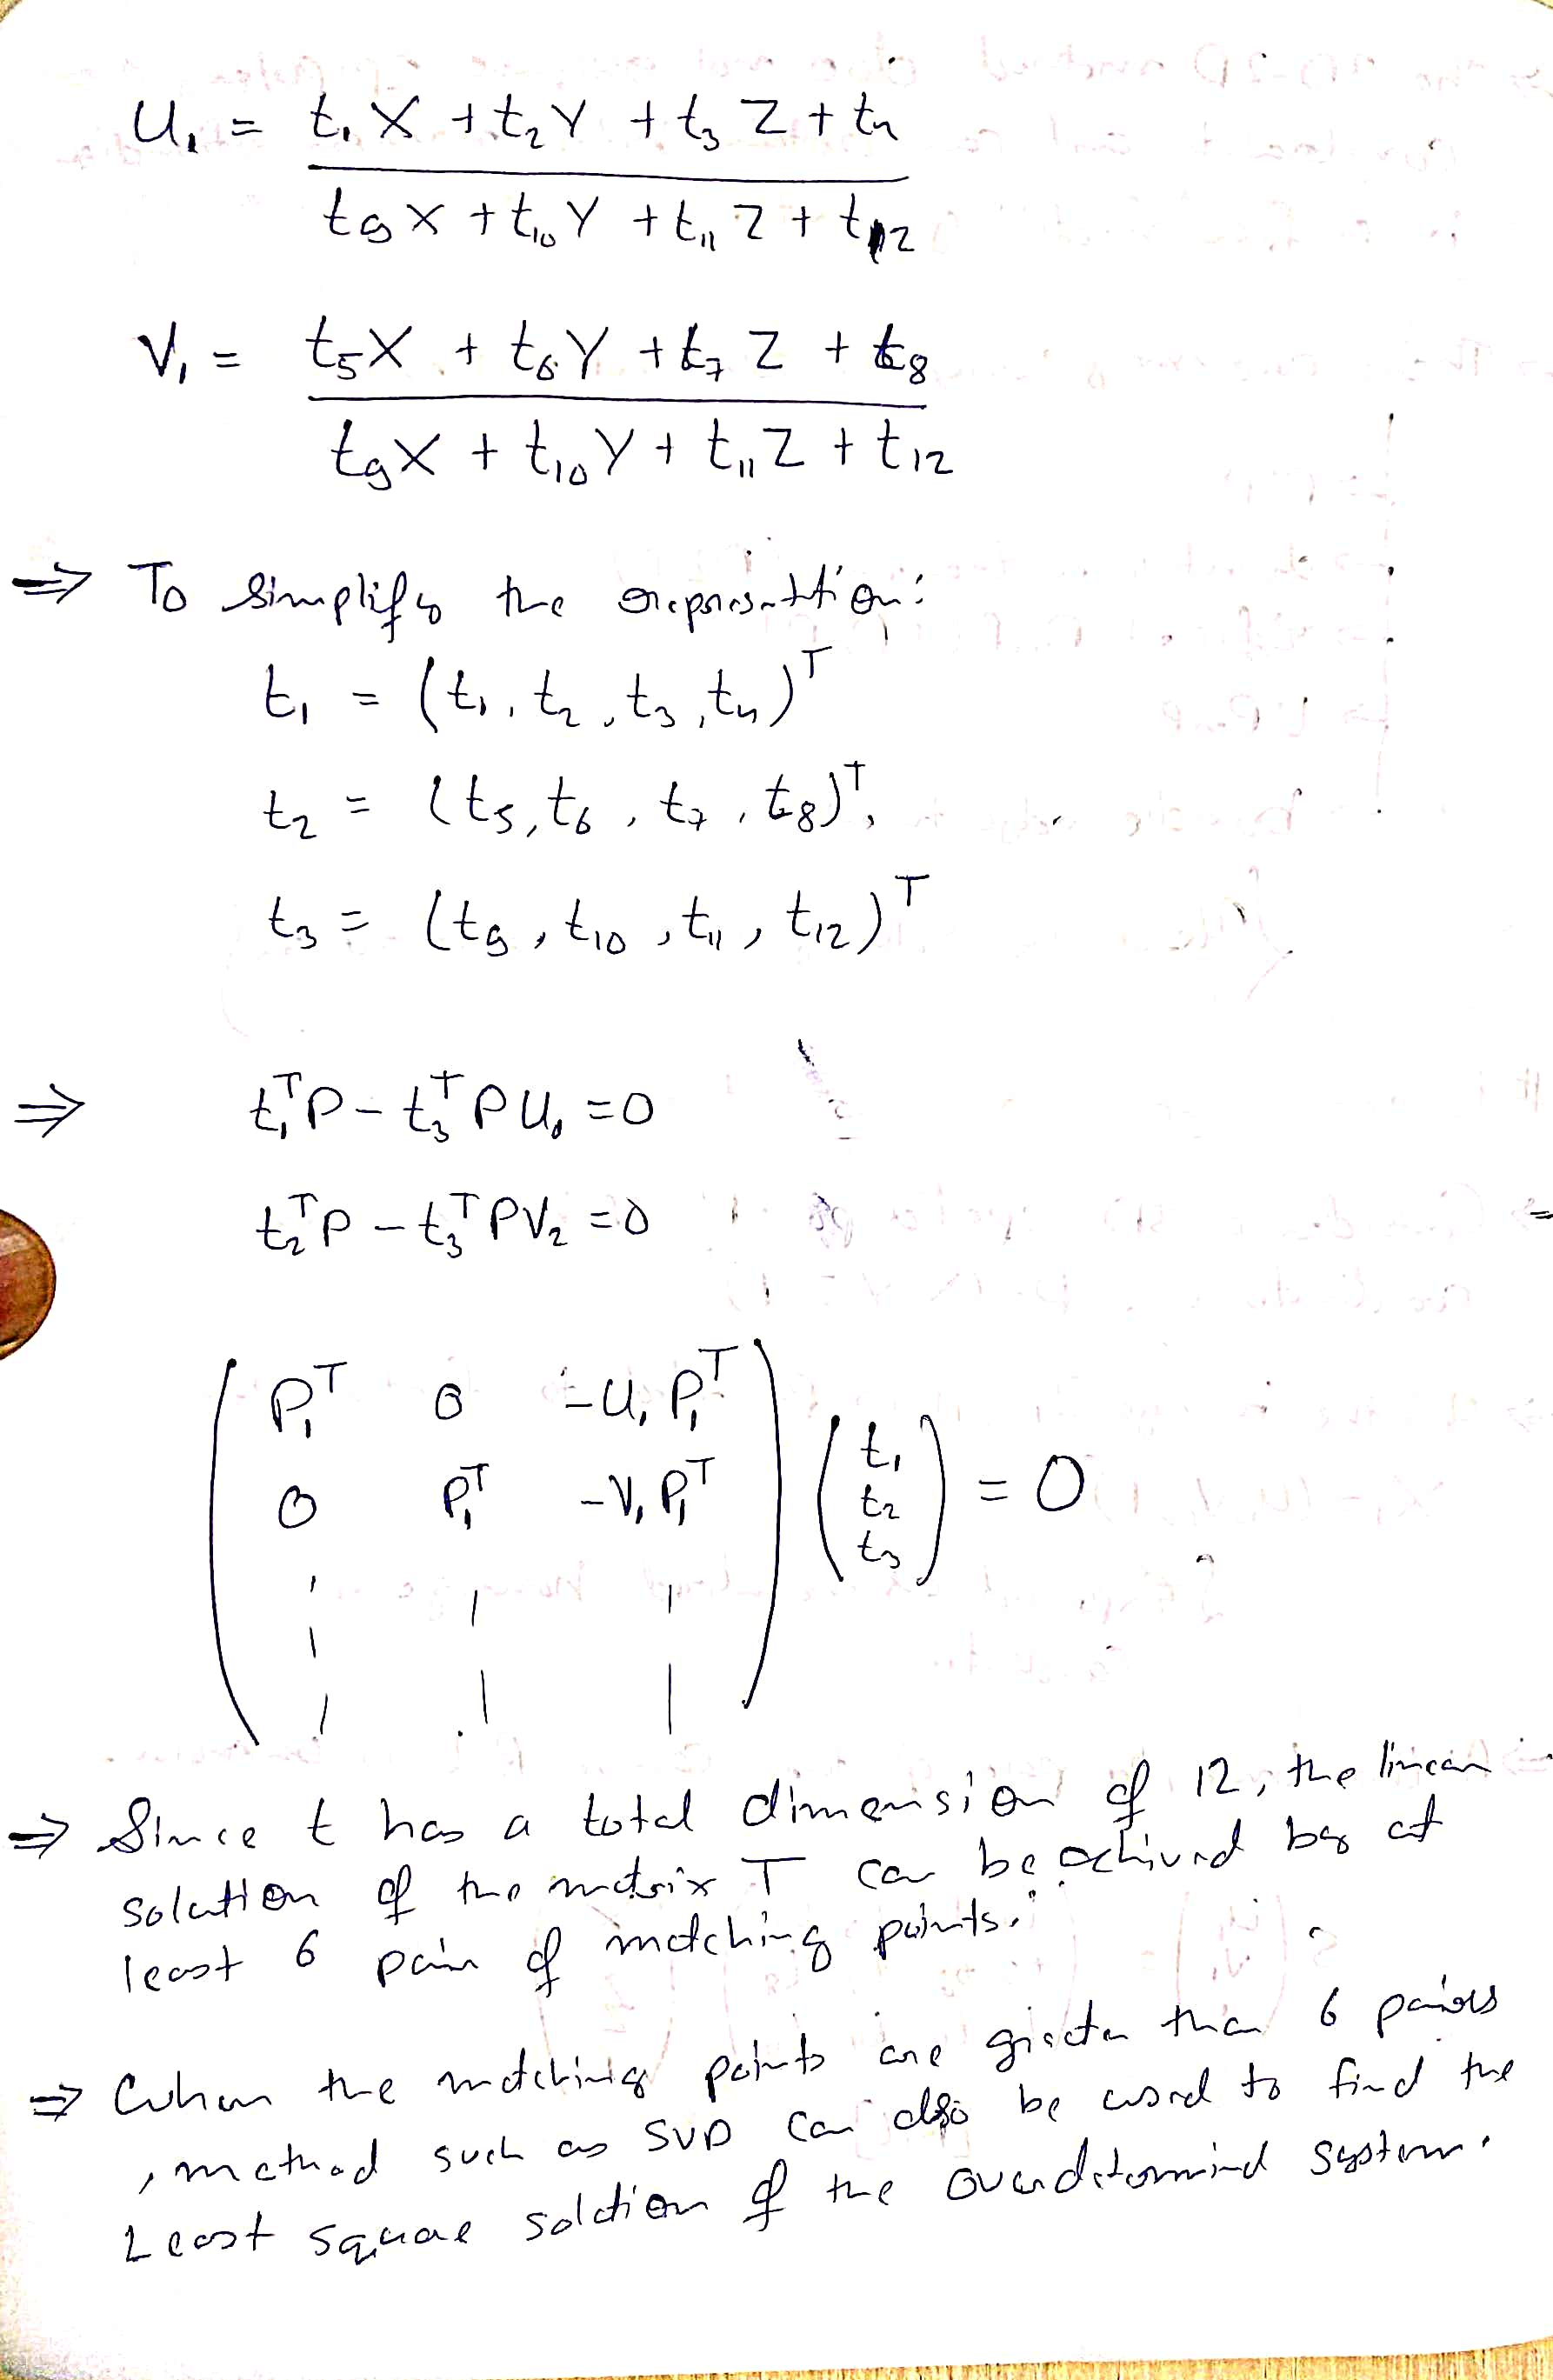 U₁ = t₁X + t₂Y + t₃Z + t₄
t₉X + t₁₀Y + t₁₁Z + t₁₂
V₁ = t₅X + t₆Y + t₇Z + t₈
t₉X + t₁₀Y + t₁₁Z + t₁₂
⇒ To simplify the representtion:
t₁ = (t₁, t₂, t₃, t₄)ᵀ
t₂ = (t₅, t₆, t₇, t₈)ᵀ,
t₃ = (t₉, t₁₀, t₁₁, t₁₂)ᵀ
⇒ t₁ᵀP - t₃ᵀPU₁ = 0
t₂ᵀP - t₃ᵀPV₂ = 0
P₁ᵀ 0 -U₁P₁ᵀ
0 P₁ᵀ -V₁P₁ᵀ
t₁
t₂ = 0
t₃
⇒ Since t has a total dimension of 12, the linear
solution of the matrix T can be achived by at
least 6 pair of matching points.
⇒ When the matching points are greater than 6 pairs
, method such as SVD can also be used to find the
Least square solution of the overdetermined system.